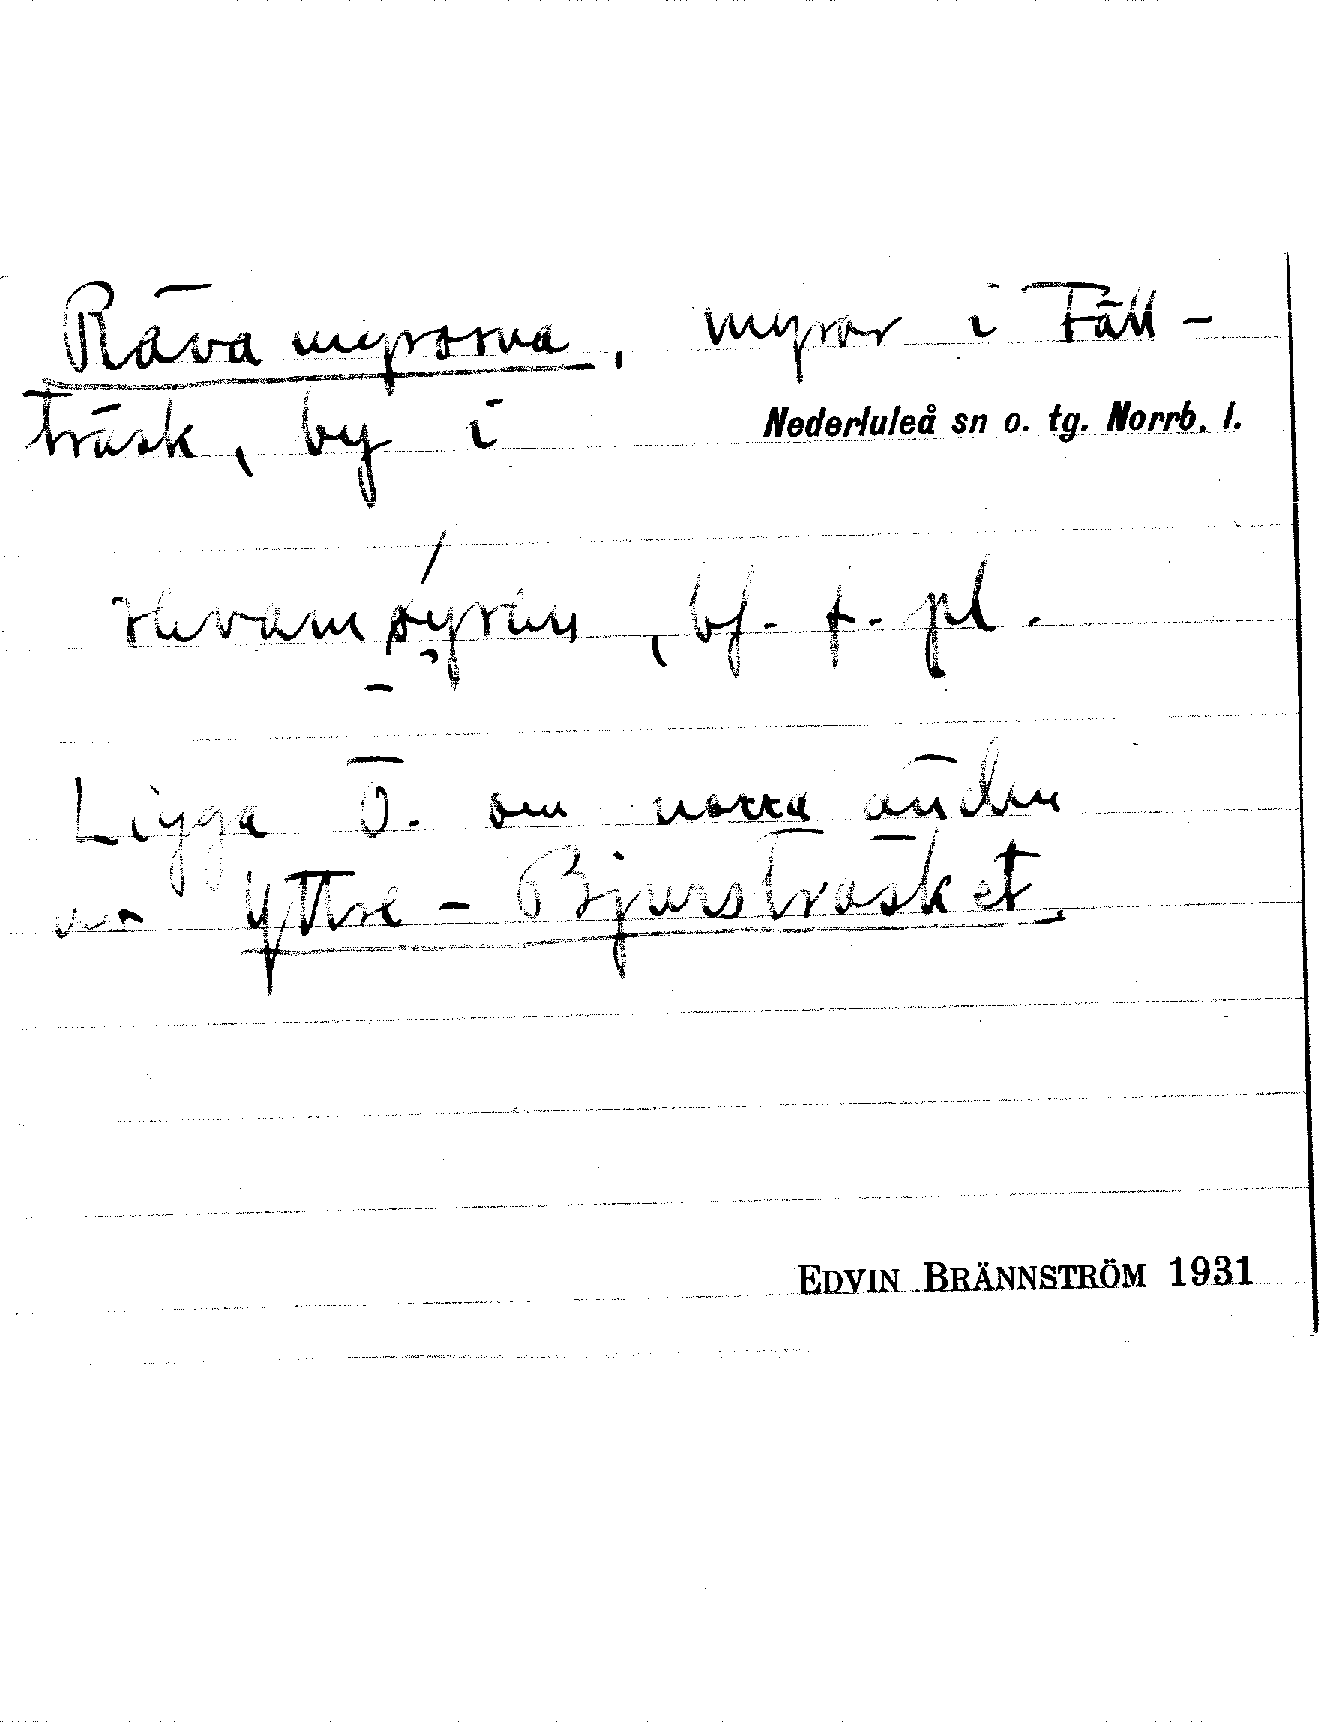 Rävamyrorna, myrar i Fäll-
träsk, by i Nederluleå sn o. tg. Norrb. l.
, bf. f. pl.
Ligga Ö. om norra änden
av Yttre-Bjursträsket.
EDVIN BRÄNNSTRÖM 1931